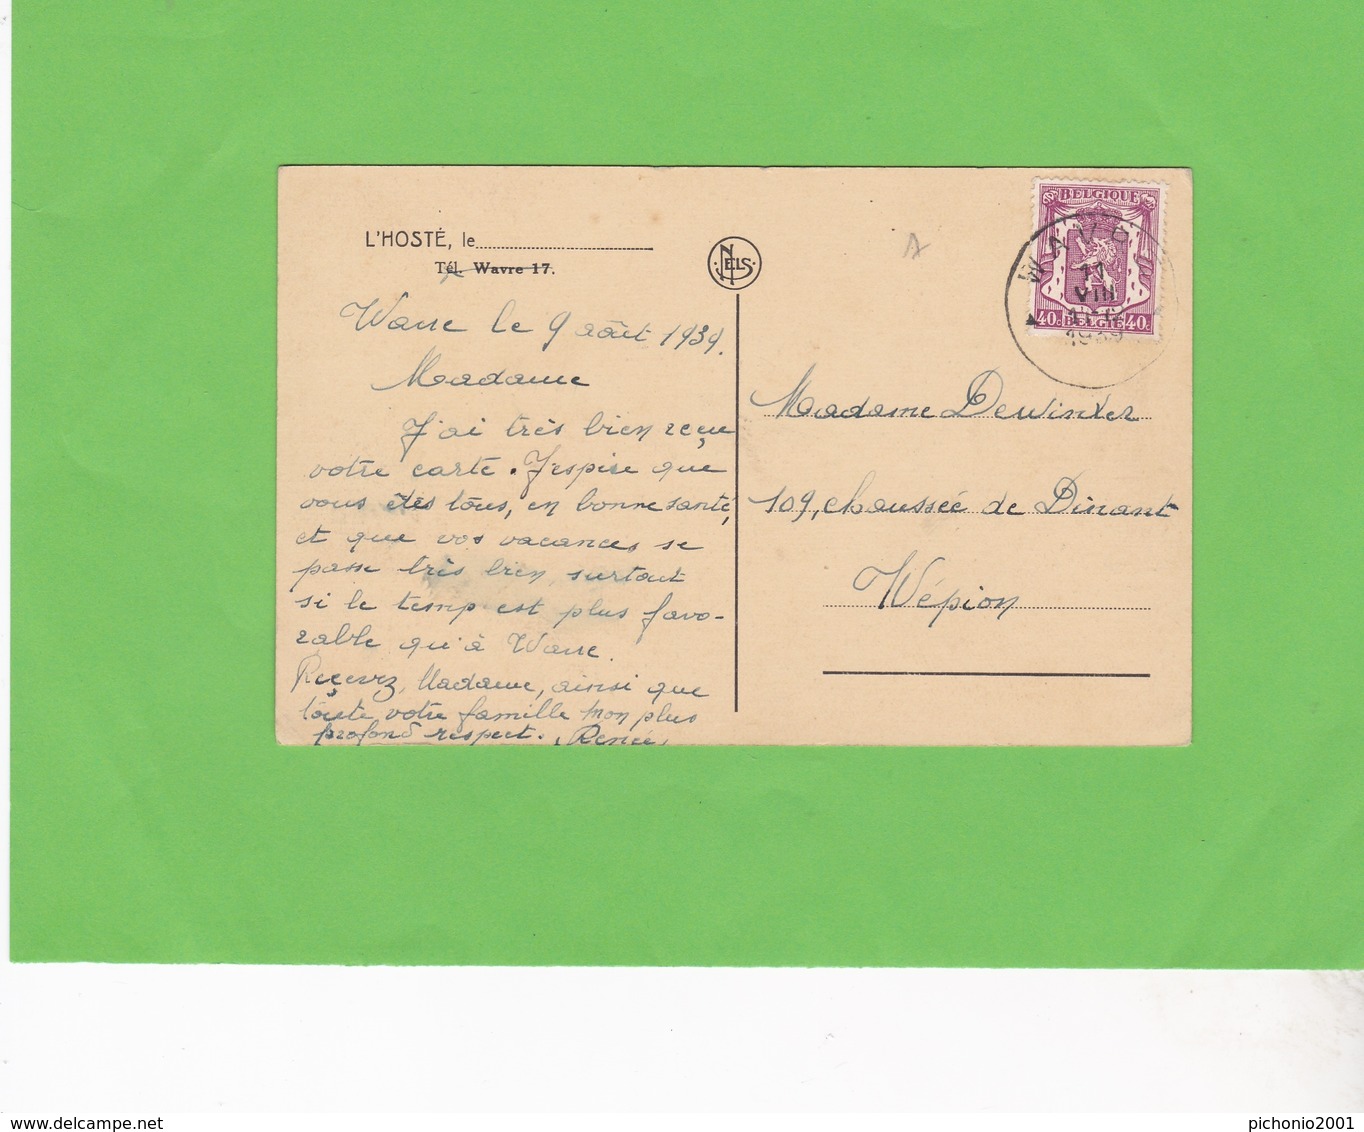 L'HOSTÉ, le
Tél. Wavre 17.
NELS
BELGIQUE
40c BELGIË 40c
11
VIII
1939
Wavre le 9 août 1939.
Madame
J'ai très bien reçu
votre carte. J'espire que
vous êtes tous, en bonne santé,
et que vos vacances se
passe très bien surtout
si le temp est plus favo-
rable qu'à Wavre.
Reçevez, Madame, ainsi que
toute votre famille mon plus
profond respect. Renée,
Madame Dewinter
109, chaussée de Dinant
Wépion
www.delcampe.net
pichonio2001